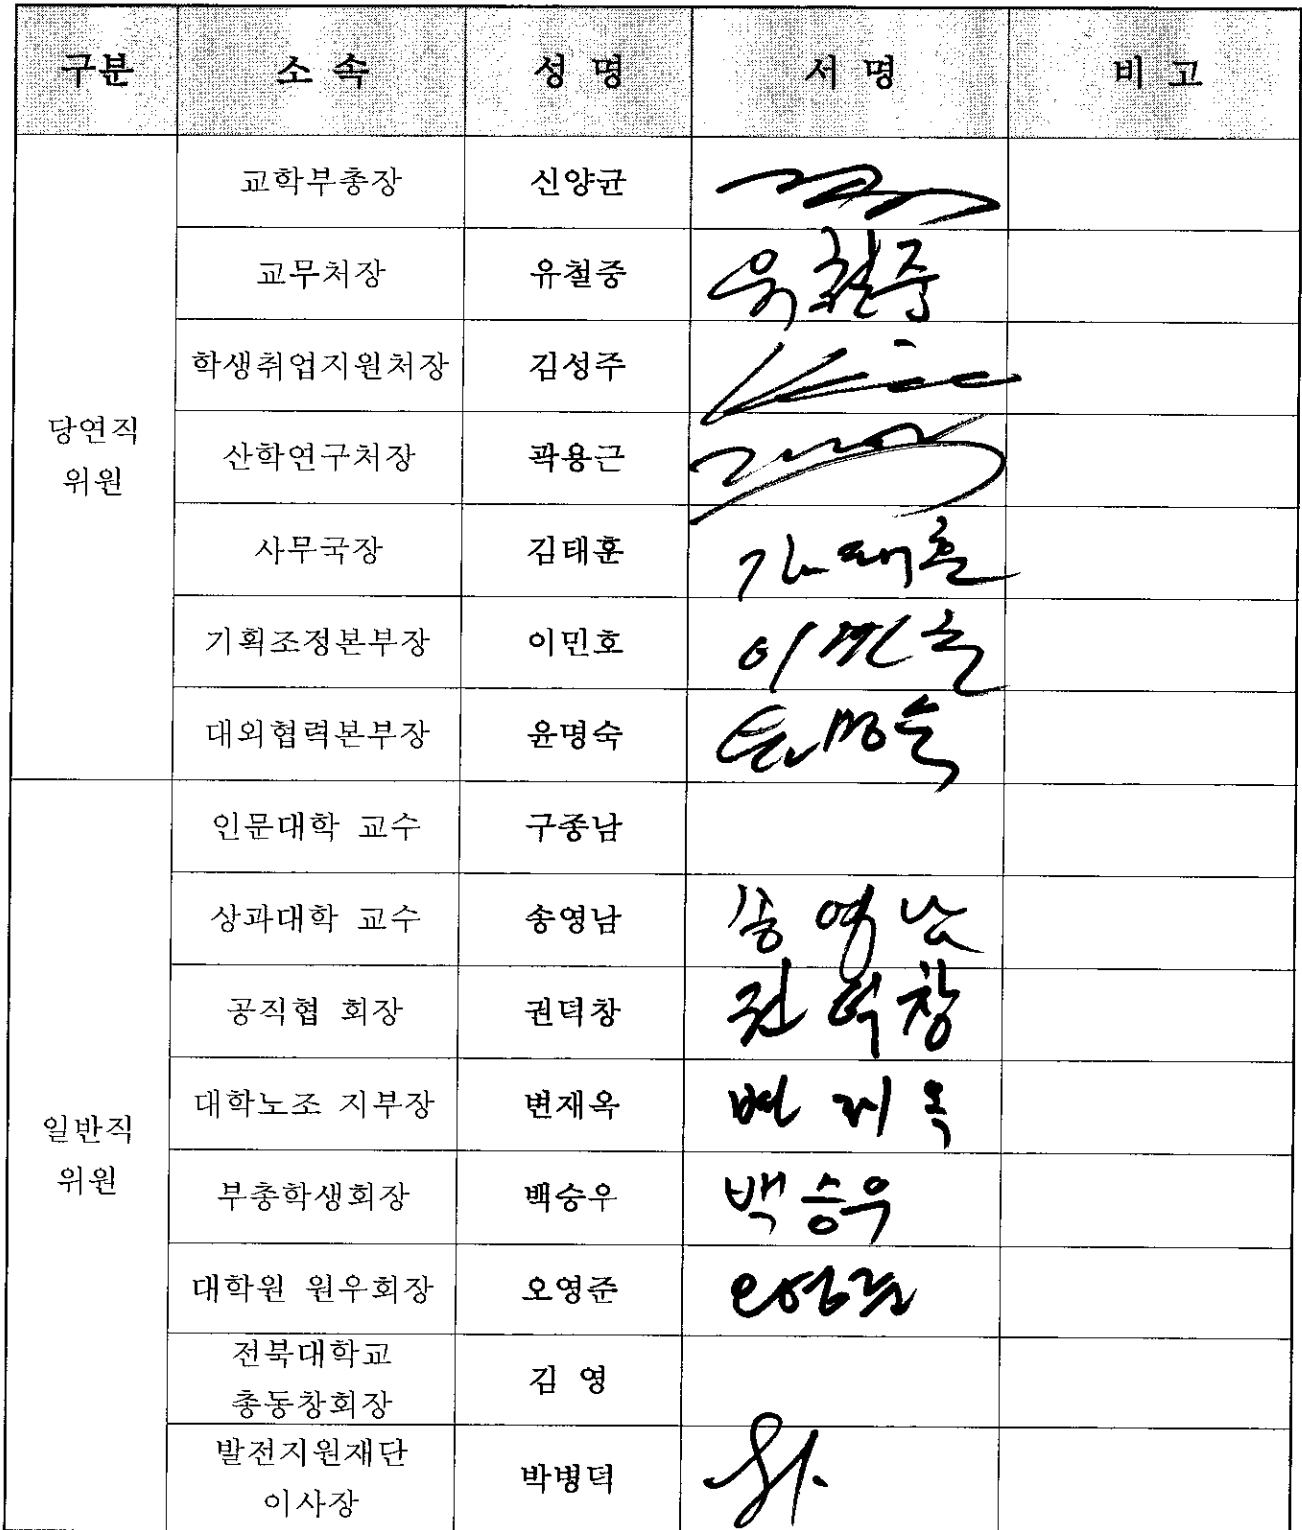 구분 소 속 성 명 서 명 비 고
교학부총장 신양균
교무처장 유철중 유철중
학생취업지원처장 김성주
당연직
위원
산학연구처장 곽용근
사무국장 김태훈 김태훈
기획조정본부장 이민호 이민호
대외협력본부장 윤명숙 윤명숙
인문대학 교수 구종남
상과대학 교수 송영남 송영남
공직협 회장 권덕창 권덕창
일반직
위원
대학노조 지부장 변재옥 변재옥
부총학생회장 백승우 백승우
대학원 원우회장 오영준 오영준
전북대학교
총동창회장 김 영
발전지원재단
이사장 박병덕